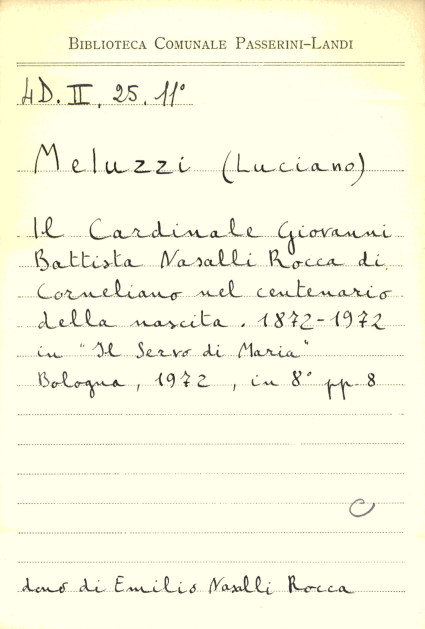 BIBLIOTECA COMUNALE PASSERINI-LANDI
4D. II, 25. 11°
Meluzzi (Luciano)
Il Cardinale Giovanni
Battista Nasalli Rocca di
Corneliano nel centenario
della nascita. 1872-1972
in "Il Servo di Maria"
Bologna, 1972, in 8° pp 8
C
dono di Emilio Nasalli Rocca